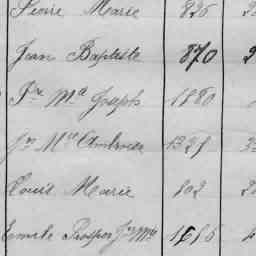 Pierre Marie 826 2
Jean Baptiste 870 2
Pre Ma Joseph 1880
Jn Mie Ambroise 1329 3
Louis Marie 802 2
Emile Prosper Jn Mie 1686 4